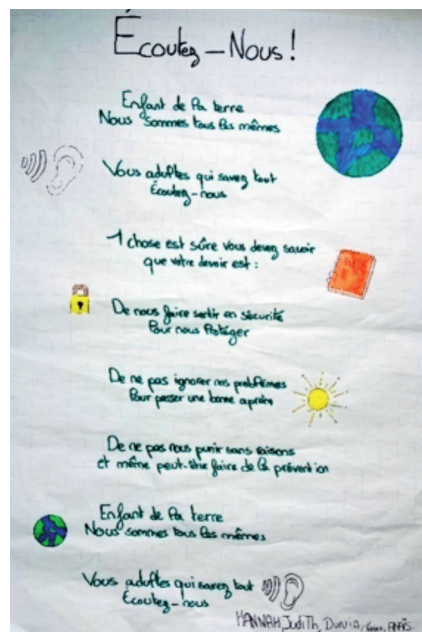 Écoutez-Nous !
Enfant de la terre
Nous sommes tous les mêmes
Vous adultes qui savez tout
Écoutez-nous
1 chose est sûre vous devez savoir
que votre devoir est :
De nous faire sentir en sécurité
Pour nous Protéger
De ne pas ignorer nos problèmes
Pour passer une bonne après
De ne pas nous punir sans raisons
et même peut-être faire de la prévention
Enfant de la terre
Nous sommes tous les mêmes
Vous adultes qui savez tout
Écoutez-nous
HANNAH, Judith, Dunvia, ANAÏS